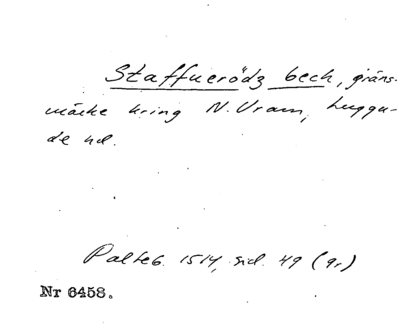 Staffuerödz bech, gräns-
märke kring N. Vram, Luggu-
de hd.
Palteb. 1514, sid. 49 (9r)
Nr 6458.